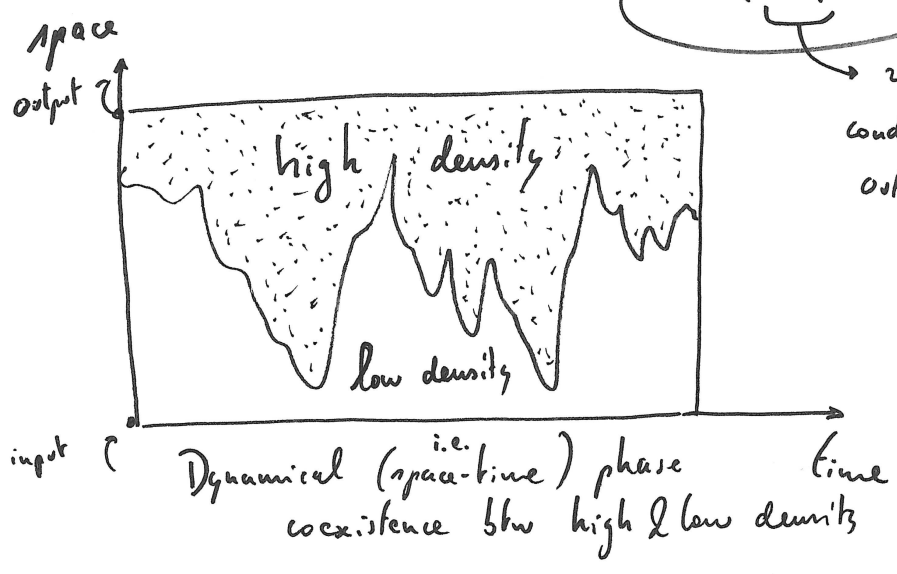 space
output
high density
low density
input
time
i.e.
Dynamical (space-time) phase
coexistence btw high & low density